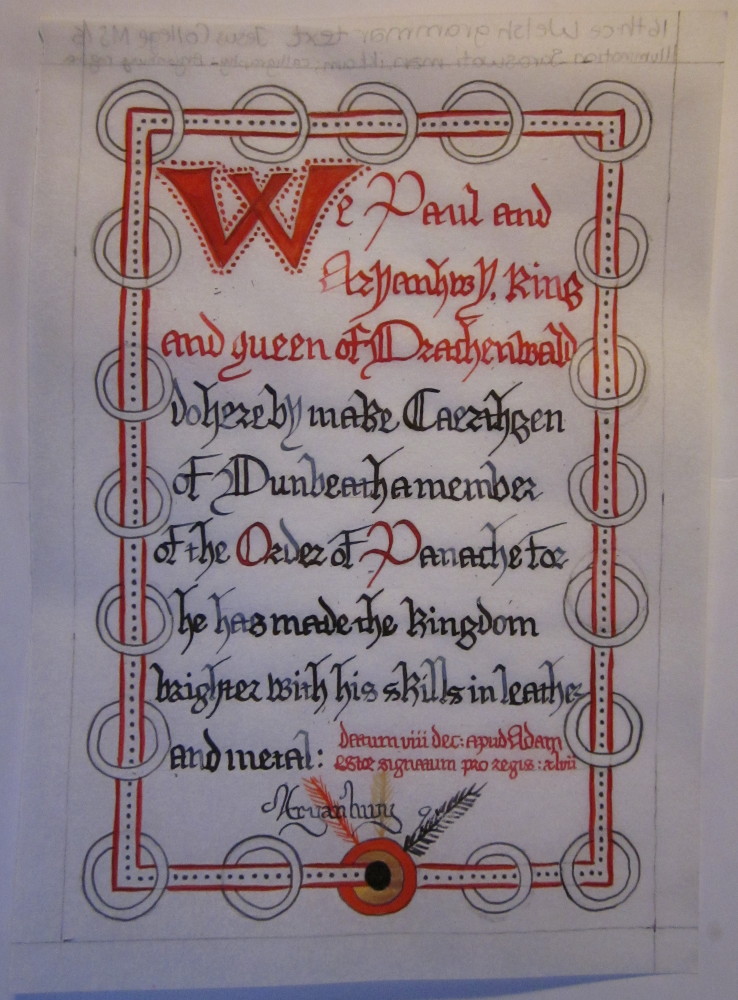 16th ce Welsh grammar text Jesus College MS 15
Illumination Saraswati manikkam, calligraphy
We Paul and
Aryanhwy, King
and queen of Drachenwald
do hereby make Caerthgen
of Dunbeath a member
of the Order of Panache for
he has made the kingdom
brighter with his skills in leather
and metal:
datum viii dec: apud Adam
estoe signatum pro regis: xlvii
Aryanhwy